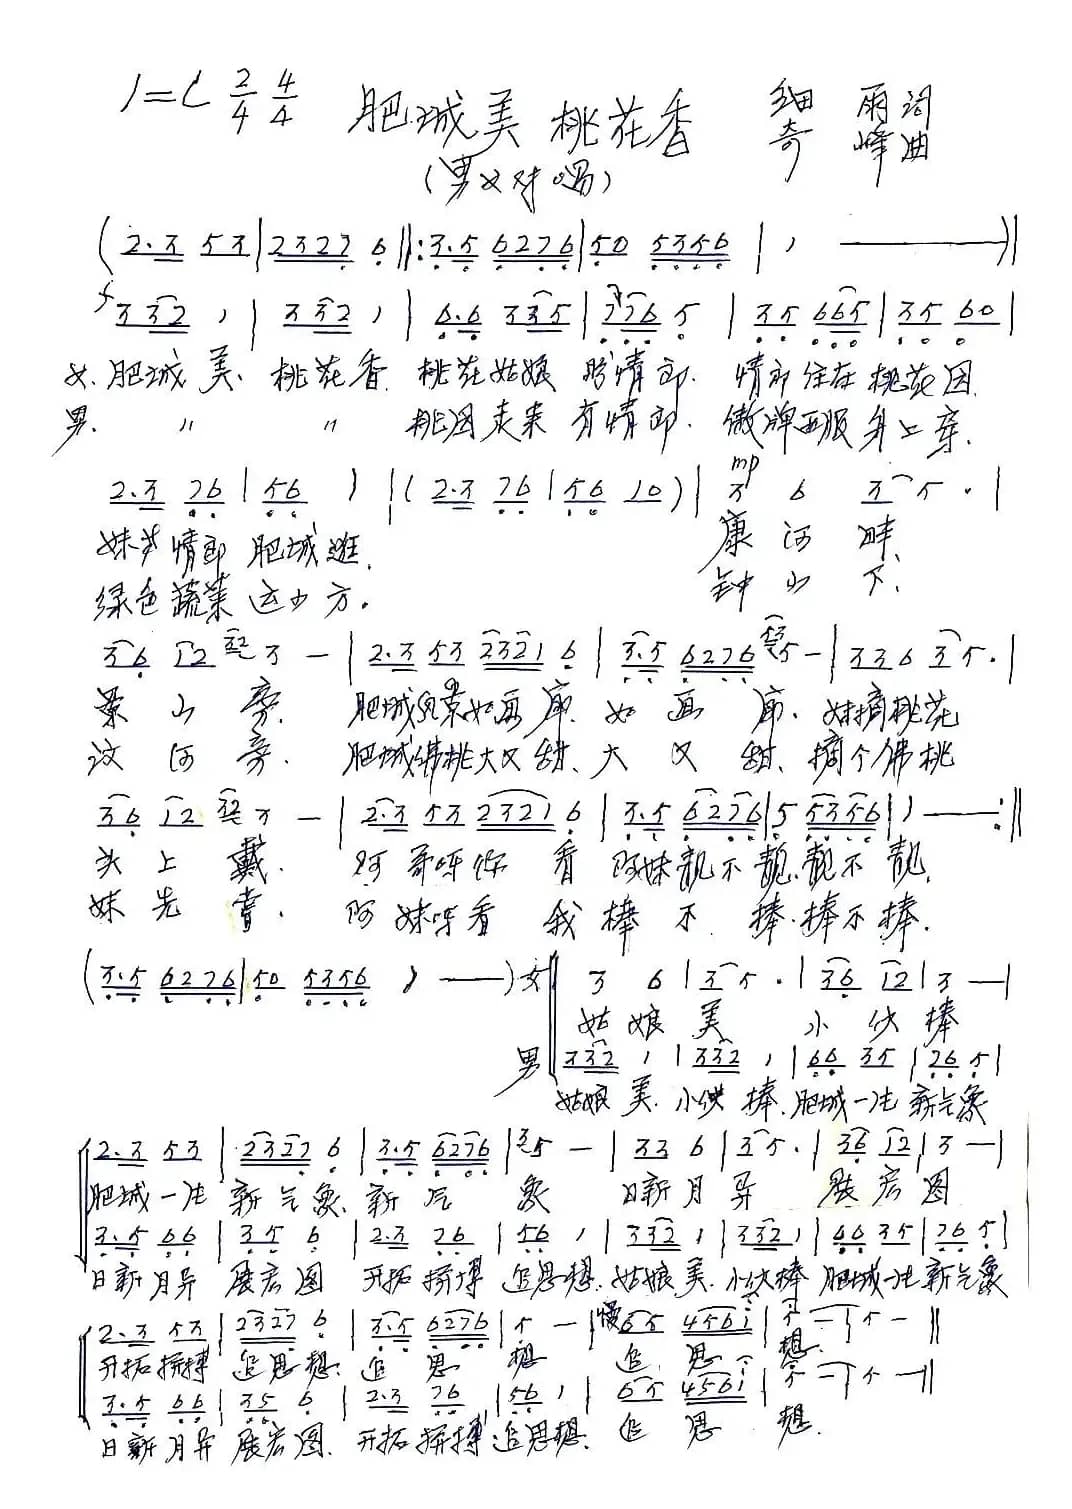 1=C 2/4 4/4 肥城美 桃花香 细雨词
奇峰曲
(男女对唱)
(2·3 53|2327 6‖:3·5 6276|50 5356|1 —)‖
f 332 1|332 1|6·6 335|776 5|35 665|35 60|
女.肥城美、桃花香.桃花姑娘 情郎.情郎住在桃花园.
男. 〃 〃 桃园走来有情郎.傲牌西服身上穿.
2·3 76|56 1|(2·3 76|56 10)|mp 3 6 3 5·|
妹 情郎肥城逛. 康河畔、
绿色蔬菜运少方。 钟山下、
36 12 32 3 —|2·3 53 2321 6|3·5 6276 5 —|336 35·|
景山旁.肥城风景如画廊.如画廊.妹摘桃花
汶河旁.肥城佛桃大又甜、大又甜、摘个佛桃
36 12 32 3 —|2·3 53 2321 6|3·5 6276|5 5356|1 — :‖
头上戴.阿哥呀你看阿妹靓不靓.靓不靓.
妹先尝.阿妹呀看我棒不棒.棒不棒.
(3·5 6276|50 5356 1 —)女 3 6|35·|36 12|3 —|
姑娘美 小伙棒
男 332 1|332 1|66 35|76 5|
姑娘美.小伙棒.肥城一片新气象
2·3 53|2327 6|3·5 6276|5 —|33 6|35·|36 12|3 —|
肥城一片新气象、新气象 日新月异 展宏图
3·5 66|35 6|2·3 76|56 1|332 1|332 1|66 35|76 5|
日新月异展宏图 开拓拼搏追思想.姑娘美.小伙棒 肥城一片新气象
2·3 53|2327 6|3·5 6276|5 —|慢 65 4561|5 —|5 —‖
开拓拼搏 追思想.追思想 追思想.
3·5 66|35 6|2·3 76|56 1|65 4561|5 —|5 —‖
日新月异展宏图.开拓拼搏追思想.追思想.